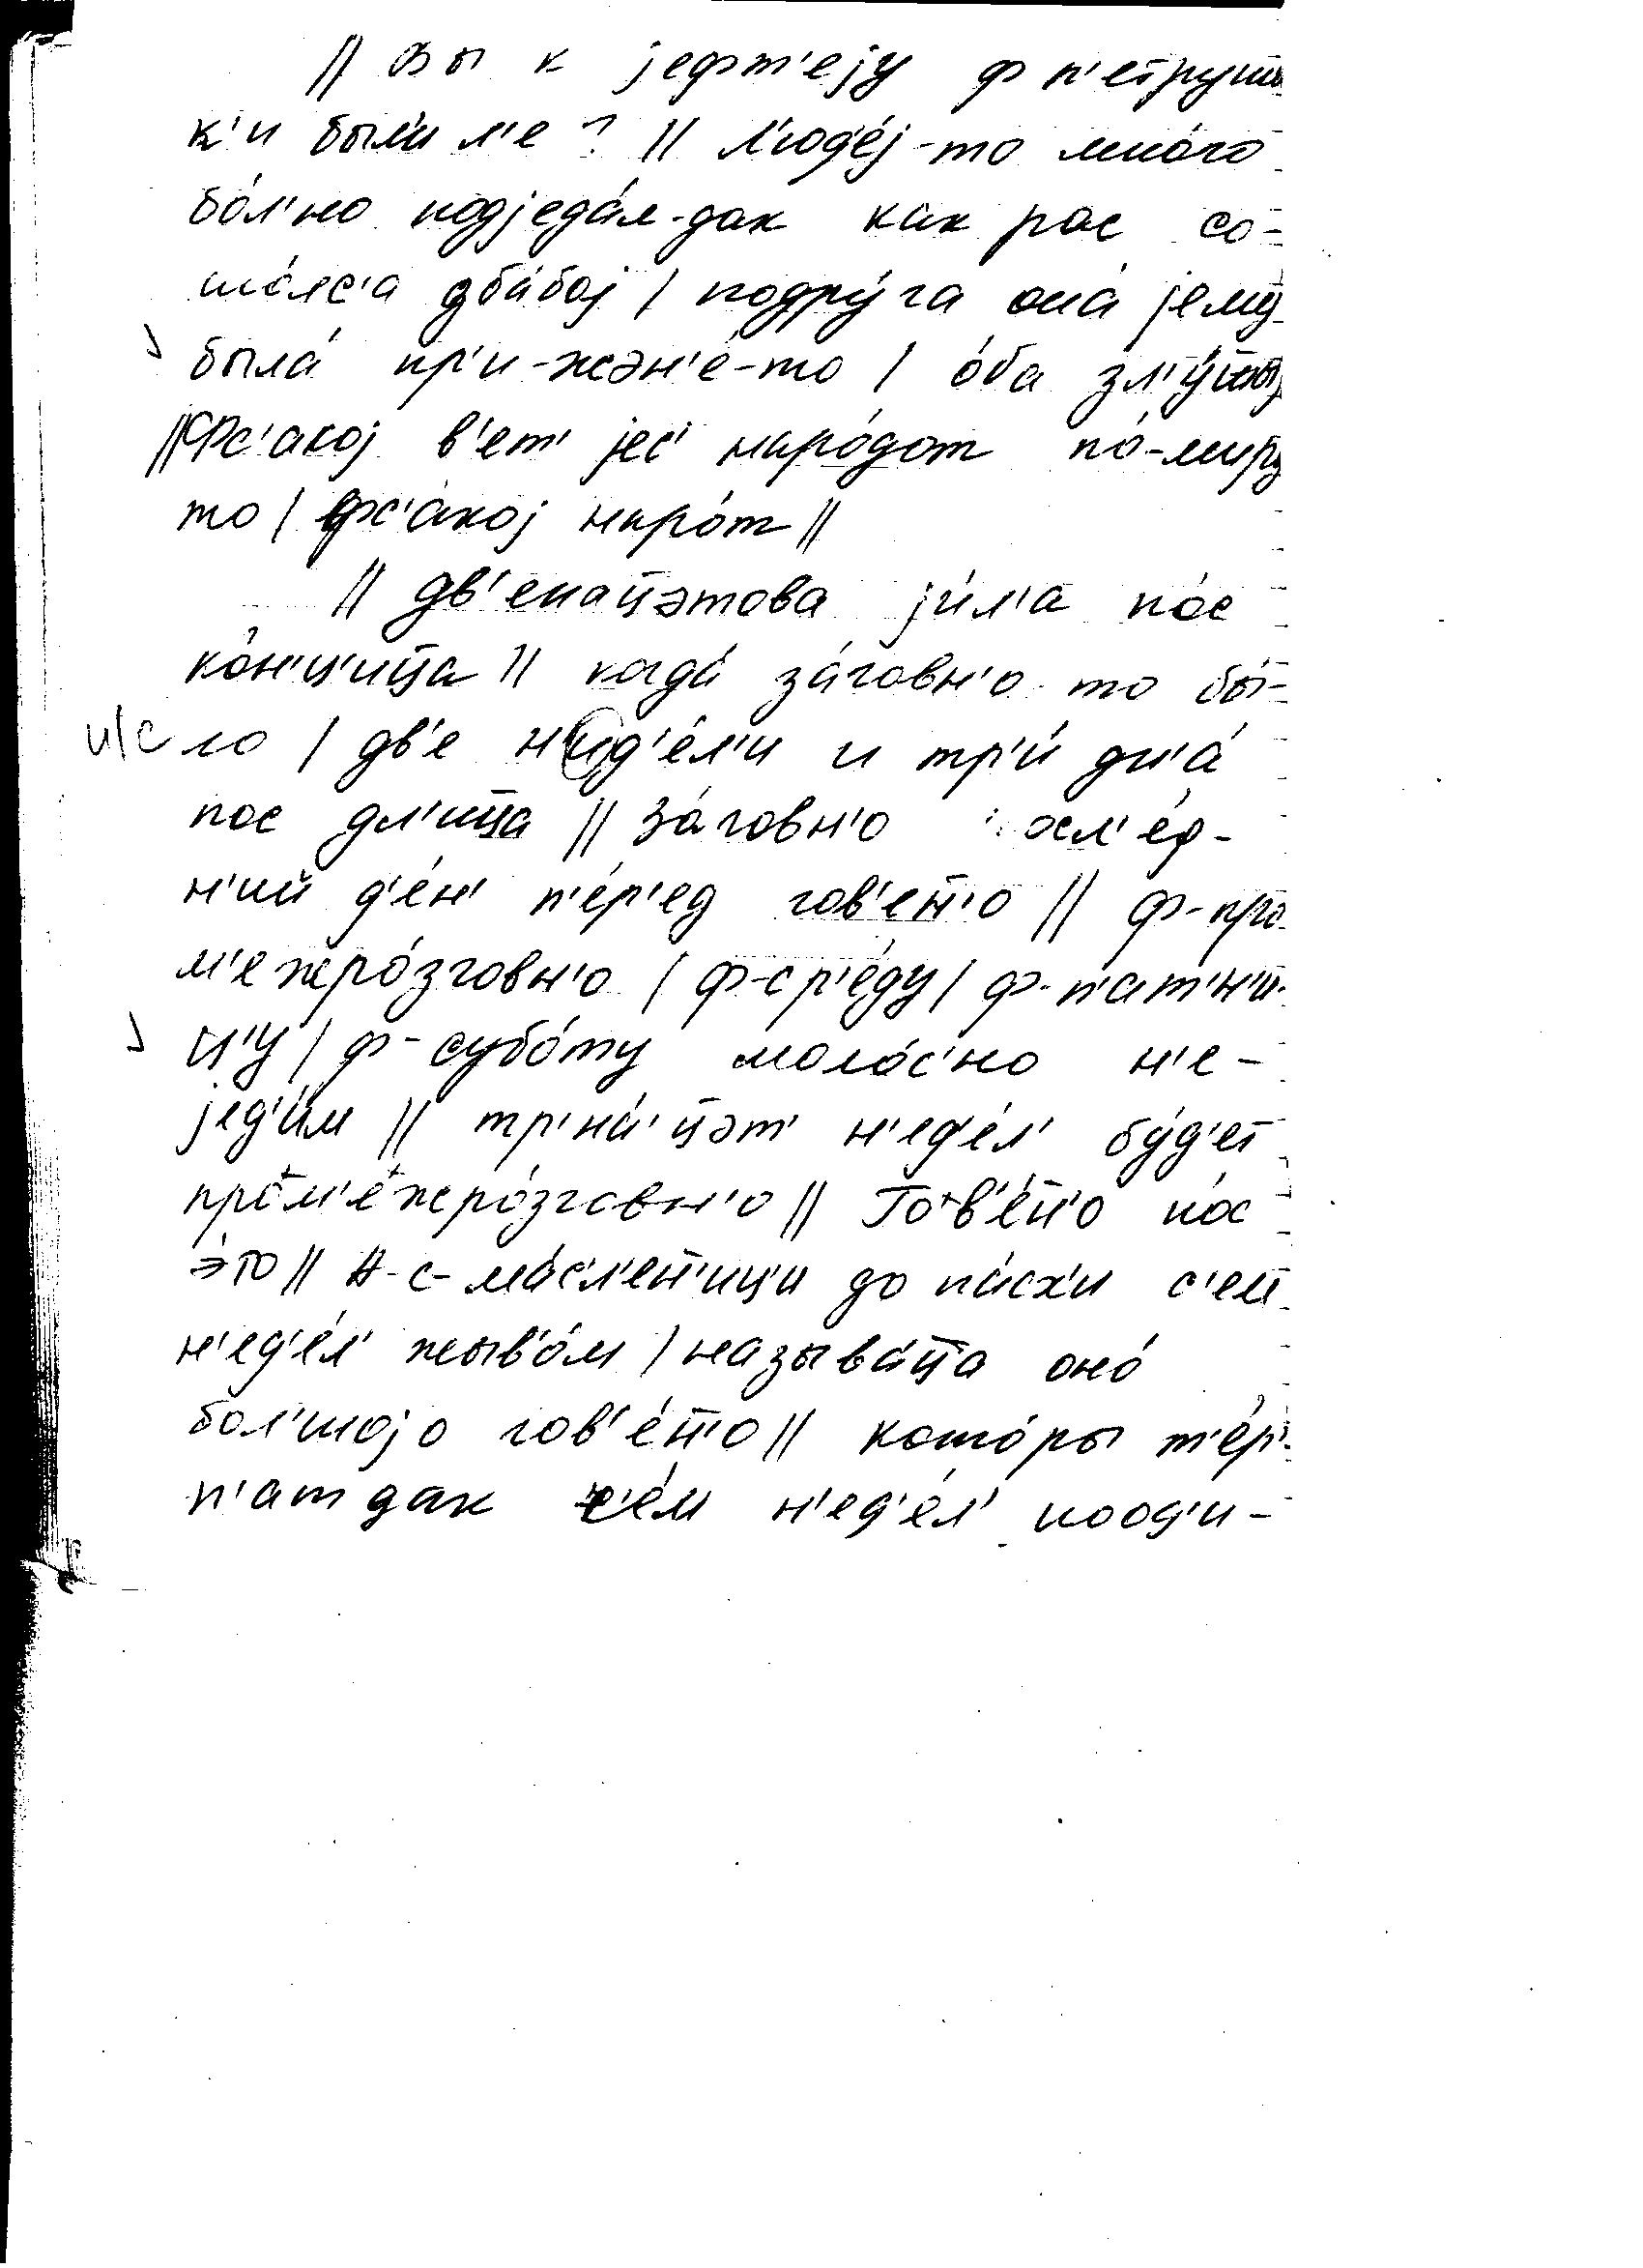 || вы к јефт'еју ф п'етруш
к'и были́ л'е? || Л'юд'е́ј-то мно́го
бо́л'но подједа́л-дак как рас со-
шо́лс'а дба́бој | подру́га она́ јему́
была́ пр'и-жэн'е́-то | о́ба зл'у́щы
|| Фс'акој в'ет' јес' наро́дот по́-миру
то | фс'а́кој наро́т ||
|| дв'енацэтова јил'а́ по́с
ко́н'ц'ица || когда́ за́говн'о то бы́-
и/с ло | дв'е н'ид'е́л'и и тр'и́ дн'а́
пос дл'ица || за́говн'о посл'е́д-
н'ий д'е́н' п'е́р'ед гов'ен'о || ф-про
м'ежро́зговн'о | ф-ср'е́ду | ф-п'ат'н'и-
ц'у | ф-субо́ту моло́с'но н'е-
јед'и́м || тр'на́'цэт' н'ед'е́л' бу́д'ет
пром'ежро́зговн'о || Гов'е́н'о по́с
э́то || А-с-ма́сл'ен'иц'и до па́сх'и с'ем
н'ед'е́л' жыв'о́м | называ́ца оно́
бол'шојо гов'е́н'о || кото́ры т'е́р'-
п'ат дак с'е́м н'ед'е́л' пood'и-